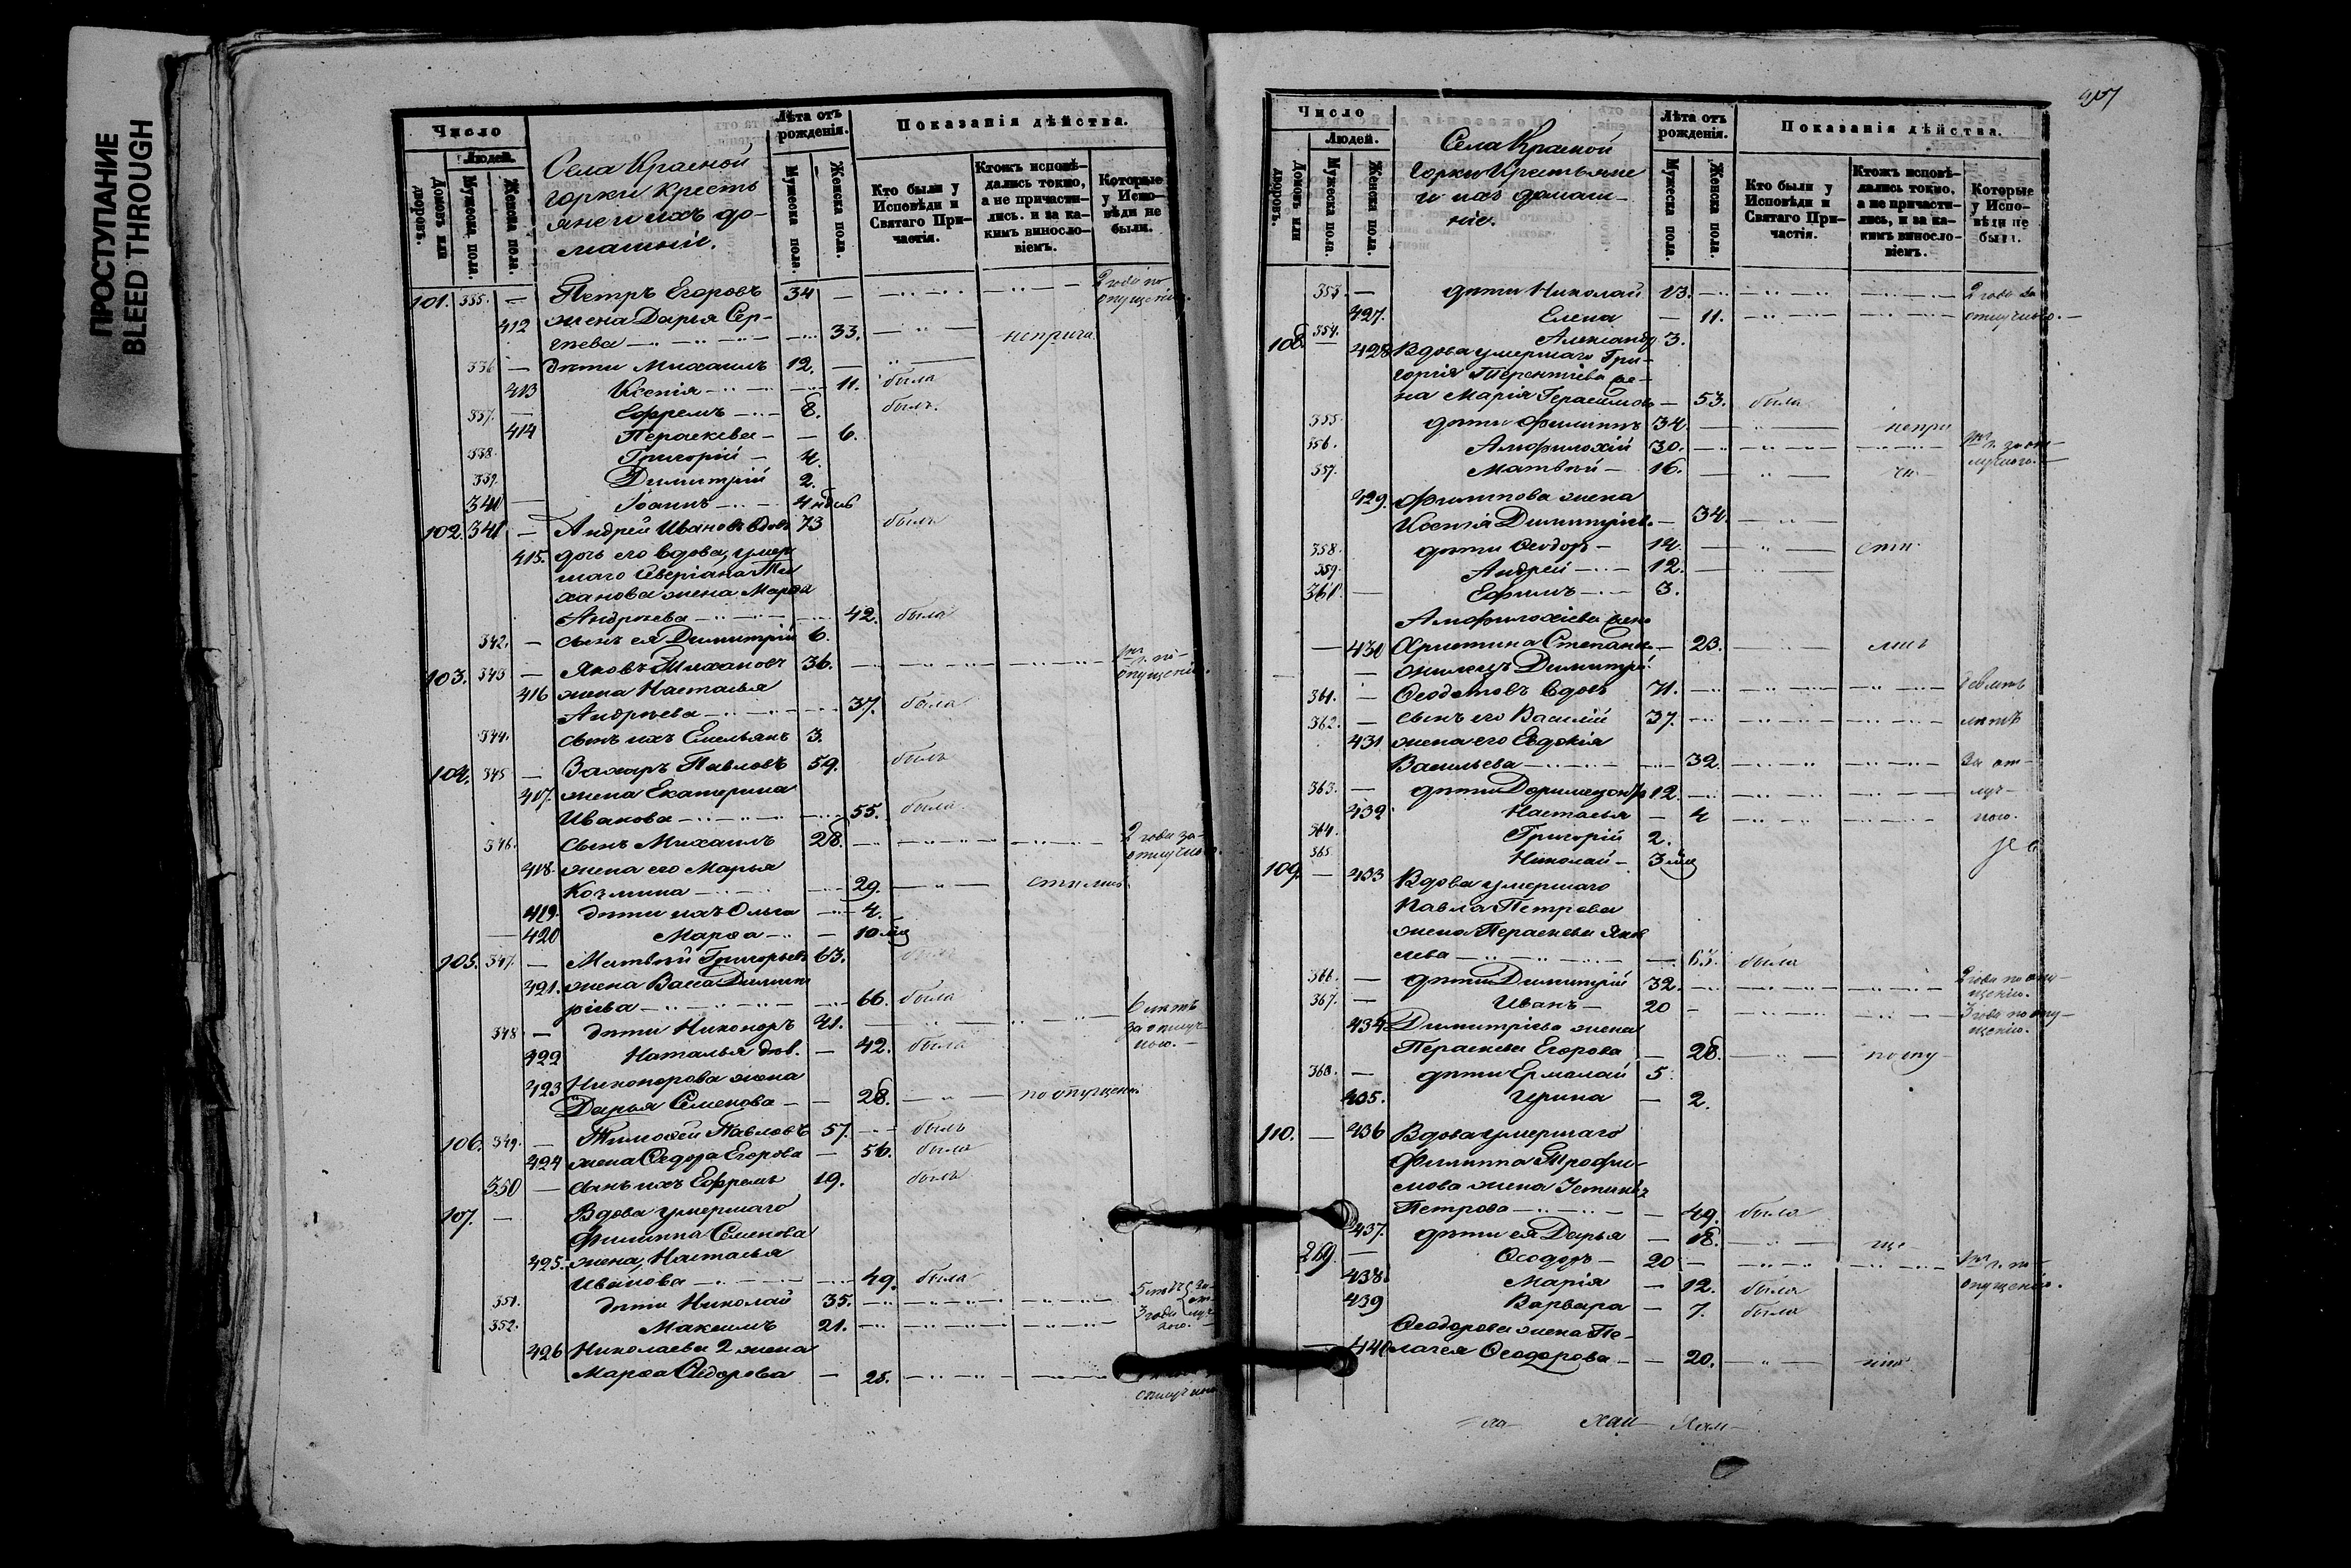 ПРОСТУПАНИЕ
BLEED THROUGH
Число
Людей.
Домовъ или дворовъ.
Мужеска пола.
Женска пола.
Села Красной
Горки кресть
яне и ихъ до-
машніе.
Лѣта отъ рожденія.
Мужеска пола.
Женска пола.
Показанія дѣйства.
Кто были у Исповѣди и Святаго Причастія.
Ктожъ исповѣ-
дались токмо,
а не причасти-
лись, и за ка-
кимъ винносло-
віемъ.
Которые
у Испо-
вѣди не
были.
101. 335. — Петръ Егоровъ 34 — 2 года по
опущенію.
412 жена Дарья Сер-
гѣева 33. неприча
336 — дѣти Михаилъ 12.
413 Ксенія 11. была
337. — Ефремъ 8. былъ.
414 Пераскева — 6.
338. Григорій — 4.
339. Димитрій 2.
340 — Іоаннъ 4
102. 341 — Андрей Ивановъ вдовъ 73 былъ
415. дочь его вдова, умер
шаго Аверіана
жена Марѳа
Андреева 42. была
342. — сынъ ея Димитрій 6.
103. 343 — Яковъ 36.
опущенію.
416 жена Наталья
Андреева 37. была
344. сынъ ихъ Емельянъ 3.
104. 345 — Захаръ Павловъ 59. былъ
417. жена Екатерина
Иванова 55. была
346. сынъ Михаилъ 28. 2 года за
отлучкою.
418. жена его Марья
Козмина 29.
419. дѣти ихъ Ольга 4.
420 Марѳа 10
105. 347. — Матвѣй Григорьевъ 63. былъ
421. жена Васса Димит
ріева 66. была
348 — дѣти Никоноръ 41. 6 лѣтъ
за отлуч-
кою.
422 Наталья — 42. была
423 Никонорова жена
Дарья Семенова — 28. по опущенію
106. 349. — Тимоѳей Павловъ 57. былъ
424 жена Ѳедора Егорова — 56. была
350 — сынъ ихъ Ефремъ 19. былъ
107. — Вдова умершаго
Филиппа Семенова
425. жена, Наталья
Иванова 49. была
351. дѣти Николай 35.
352. Максимъ 21. 3 года
426 Николаева 2 жена
Марѳа Ѳедорова — 28.
Число
Людей.
Домовъ или дворовъ.
Мужеска пола.
Женска пола.
Села Красной
Горки Крестьяне
и ихъ домаш-
ніе.
Лѣта отъ рожденія.
Мужеска пола.
Женска пола.
Показанія дѣйства.
Кто были у Исповѣди и Святаго Причастія.
Ктожъ исповѣ-
дались токмо,
а не причасти-
лись, и за ка-
кимъ винносло-
віемъ.
Которые
у Испо-
вѣди не
были.
353. — дѣти Николай 13. 2 года за
427. Елена — 11. отлучкою.
354. Александръ 3.
108. — 428 Вдова умершаго Гри-
горія Терентіева же-
на Марія Герасимова — 53. была
355. дѣти Филиппъ 34. непри
356. Амфилохій 30.
357. Матвѣй — 16. ча
429. Филиппова жена
Ксенія Димитріева — 34.
358. дѣти Ѳеодоръ — 14. сти
359. Андрей 12.
360. — Ефимъ 3.
Амфилохіева жена
— 430 Христина Степанова — 23. лись
Димитрій
361. — Ѳеодотовъ вдовъ 71.
362. — сынъ его Василій 37. лѣтъ
431 жена его Евдокія
Васильева 32. за от-
363. — дѣти 12. луч-
432 Наталья — 4 кою.
364. Григорій 2.
365. Николай — 3
109. — 433 Вдова умершаго
Павла Петрова
жена Пераскева Яков
лева 63. была
366. — дѣти Димитрій 32. 2 года по опу-
щенію.
367. — Иванъ — 20 3 года по опу-
щенію.
434 Димитріева жена
Пераскева Егорова — 28. по опу
368. — дѣти Ермолай 5.
435. Ирина — 2.
110. — 436 Вдова умершаго
Филиппа Трофи-
мова жена Устинья
Петрова 49. была
437. дѣти ея Дарья — 18. ще
269. — Ѳеодоръ — 20
опущенію.
438 Марія — 12. была
439 Варвара — 7. была
Ѳеодорова жена Пе-
440 лагея Ѳеодорова — 20. нію